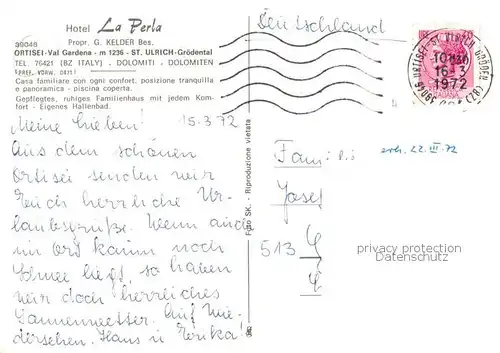 Hotel La Perla
39046 Propr. G. KELDER Bes.
ORTISEI - Val Gardena - m 1236 - ST. ULRICH-Grödental
TEL. 76421 (BZ ITALY) - DOLOMITI - DOLOMITEN
(PREF. VORW. 0471)
Casa familiare con ogni confort, posizione tranquilla
e panoramica - piscina coperta.
Gepflegtes, ruhiges Familienhaus mit jedem Kom-
fort - Eigenes Hallenbad.
Meine Lieben! 15.3.72
Aus dem schönen
Ortisei senden wir
Euch herrliche Ur-
laubsgrüße. Wenn auch
im Ort kaum noch
Schnee liegt, so haben
wir doch herrliches
Sonnenwetter. Auf Wie-
dersehen. Hans u. Erika!
Foto SK. - Riproduzione vietata
Deutschland
39046 ORTISEI-ST. ULRICH GRÖDEN (BZ)
16-3
1972
Fam.
Josef
513
erh. 22. III. 72
privacy protection
Datenschutz